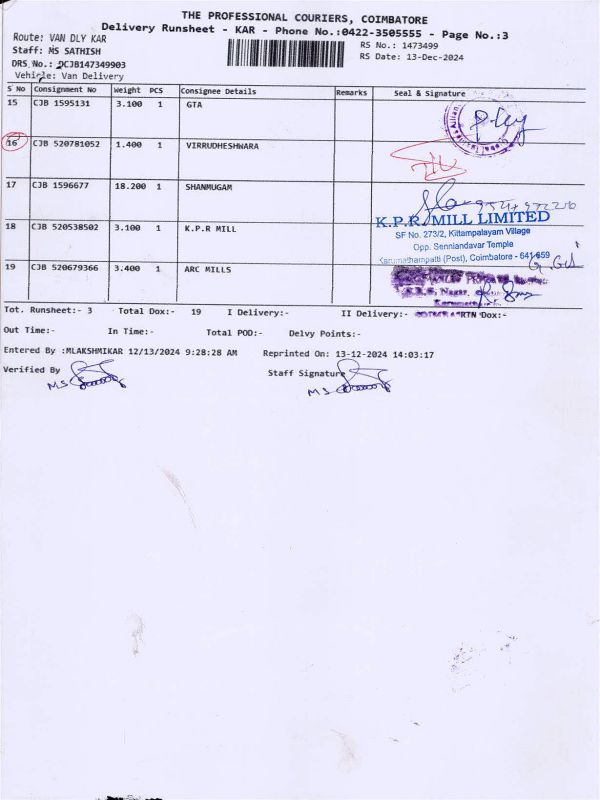 THE PROFESSIONAL COURIERS, COIMBATORE
Delivery Runsheet - KAR - Phone No.:0422-3505555 - Page No.:3
Route: VAN DLY KAR
RS No.: 1473499
Staff: MS SATHISH
RS Date: 13-Dec-2024
DRS No.: DCJB147349903
Vehicle: Van Delivery
S No Consignment No Weight PCS Consignee Details Remarks Seal & Signature
15 CJB 1595131 3.100 1 GTA
16 CJB 520781052 1.400 1 VIRRUDHESHWARA
17 CJB 1596677 18.200 1 SHANMUGAM
K.P.R. MILL LIMITED
18 CJB 520538502 3.100 1 K.P.R MILL
SF No. 273/2, Kittampalayam Village
Opp. Senniandavar Temple
Karumathampatti (Post), Coimbatore - 641 659
19 CJB 520679366 3.400 1 ARC MILLS
Tot. Runsheet:- 3 Total Dox:- 19 I Delivery:- II Delivery:- RTN Dox:-
Out Time:- In Time:- Total POD:- Delvy Points:-
Entered By :MLAKSHMIKAR 12/13/2024 9:28:28 AM Reprinted On: 13-12-2024 14:03:17
Verified By Staff Signature
M.S M.S